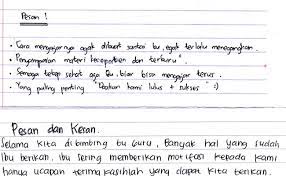 Pesan !
• Cara mengajarnya agak dibuat santai bu, agak terlalu menegangkan.
• Penyampaian materi kecepatan dan terburu".
• Semoga tetep sehat aja Bu, biar bisa mengajar terus.
• Yang paling penting "Doakan kami lulus + sukses" :)
Pesan dan Kesan.
Selama kita dibimbing bu Guru, Banyak hal yang sudah
Ibu berikan, ibu sering memberikan motifasi kepada kami
hanya ucapan terima kasihlah yang dapat kita berikan.